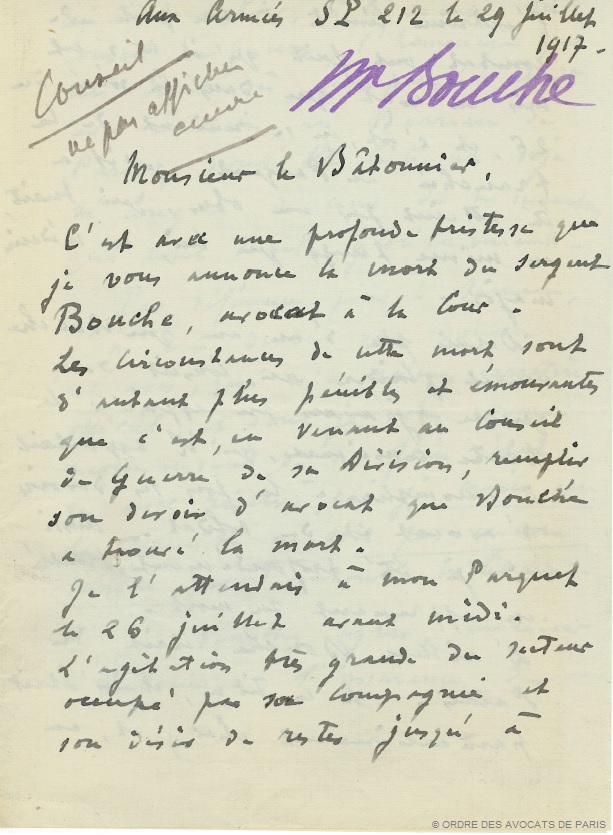 Aux Armées SP 212 le 29 juillet
1917.
Conseil
ne pas afficher
encore
Me Bouché
Monsieur le Bâtonnier,
C'est avec une profonde tristesse que
je vous annonce la mort du sergent
Bouché, avocat à la Cour.
Les circonstances de cette mort sont
d'autant plus pénibles et émouvantes
que c'est, en venant au Conseil
de Guerre de sa Division, remplir
son devoir d'avocat que Bouché
a trouvé la mort.
Je l'attendais à mon Parquet
le 26 juillet avant midi.
L'agitation très grande du secteur
occupé par sa compagnie et
son désir de rester jusqu'à
© ORDRE DES AVOCATS DE PARIS